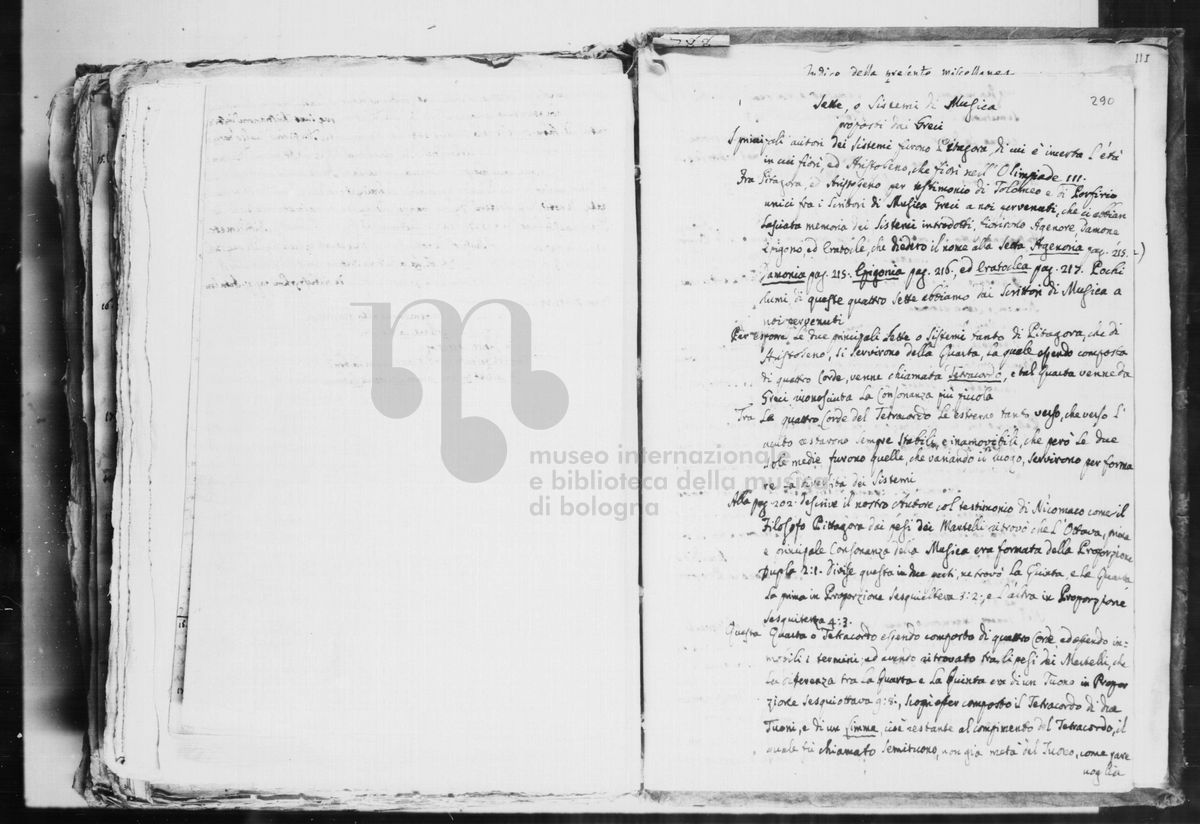 III
Indice della presente miscellanea
290
Sette, o Sistemi di Musica
proposti dai Greci
I principali autori dei Sistemi furono Pitagora, di cui è incerta l'età
in cui fiorì, ed Aristosseno, che fiorì nell'Olimpiade III.
Fra Pitagora, ed Aristosseno per testimonio di Tolomeo e di Porfirio
unici fra i Scritori di Musica Greci a noi pervenuti, che ci abbian
lasciata memoria dei Sistemi introdotti, fiorirono Agenore, Damone
Epigono, ed Eratocle, che diedero il nome alla Setta Agenoria pag. 215.
Damonia pag. 215. Epigonia pag. 216. ed Eratoclea pag. 217. Pochi
lumi di queste quattro Sette abbiamo dai Scrittori di Musica a
noi pervenuti
Per esporre le due principali Sette o Sistemi tanto di Pitagora, che di
Aristosseno, si servirono della Quarta, la quale essendo composta
di quattro Corde, venne chiamata Tetracordo, e tal Quarta venne da
Greci riconosciuta la Consonanza più piccola
Tra le quattro Corde del Tetracordo le estreme tanto verso, che verso l'
acuto restarono sempre stabili, e inamovibili, che però le due
sole medie furono quelle, che variando in luogo, servirono per forma
re la diversità dei Sistemi
Alla pag. 202. descrive il nostro Autore col testimonio di Nicomaco come il
Filosofo Pittagora dai pesi dei Martelli ritrovò che l'Ottava, prima
e principale Consonanza della Musica era formata della Proporzione
Dupla 2:1. Divise questa in due parti, ne trovò la Quinta, e la Quarta
la prima in Proporzione Sesquialtera 3:2., e l'altra in Proporzione
Sesquiterza 4:3.
Questa Quarta o Tetracordo essendo composto di quattro Corde, ed essendo im-
mobili i termini, ed avendo ritrovato tra li pesi dei Martelli, che
la differenza tra la Quarta e la Quinta era di un Tuono in Propor
zione Sesquiottava 9:8., scoprì esser composto il Tetracordo di due
Tuoni, e di un Limma, cioè restante al compimento del Tetracordo, il
quale fu chiamato Semituono, non già metà del Tuono, come pare
voglia
museo internazionale
e biblioteca della musica
di bologna